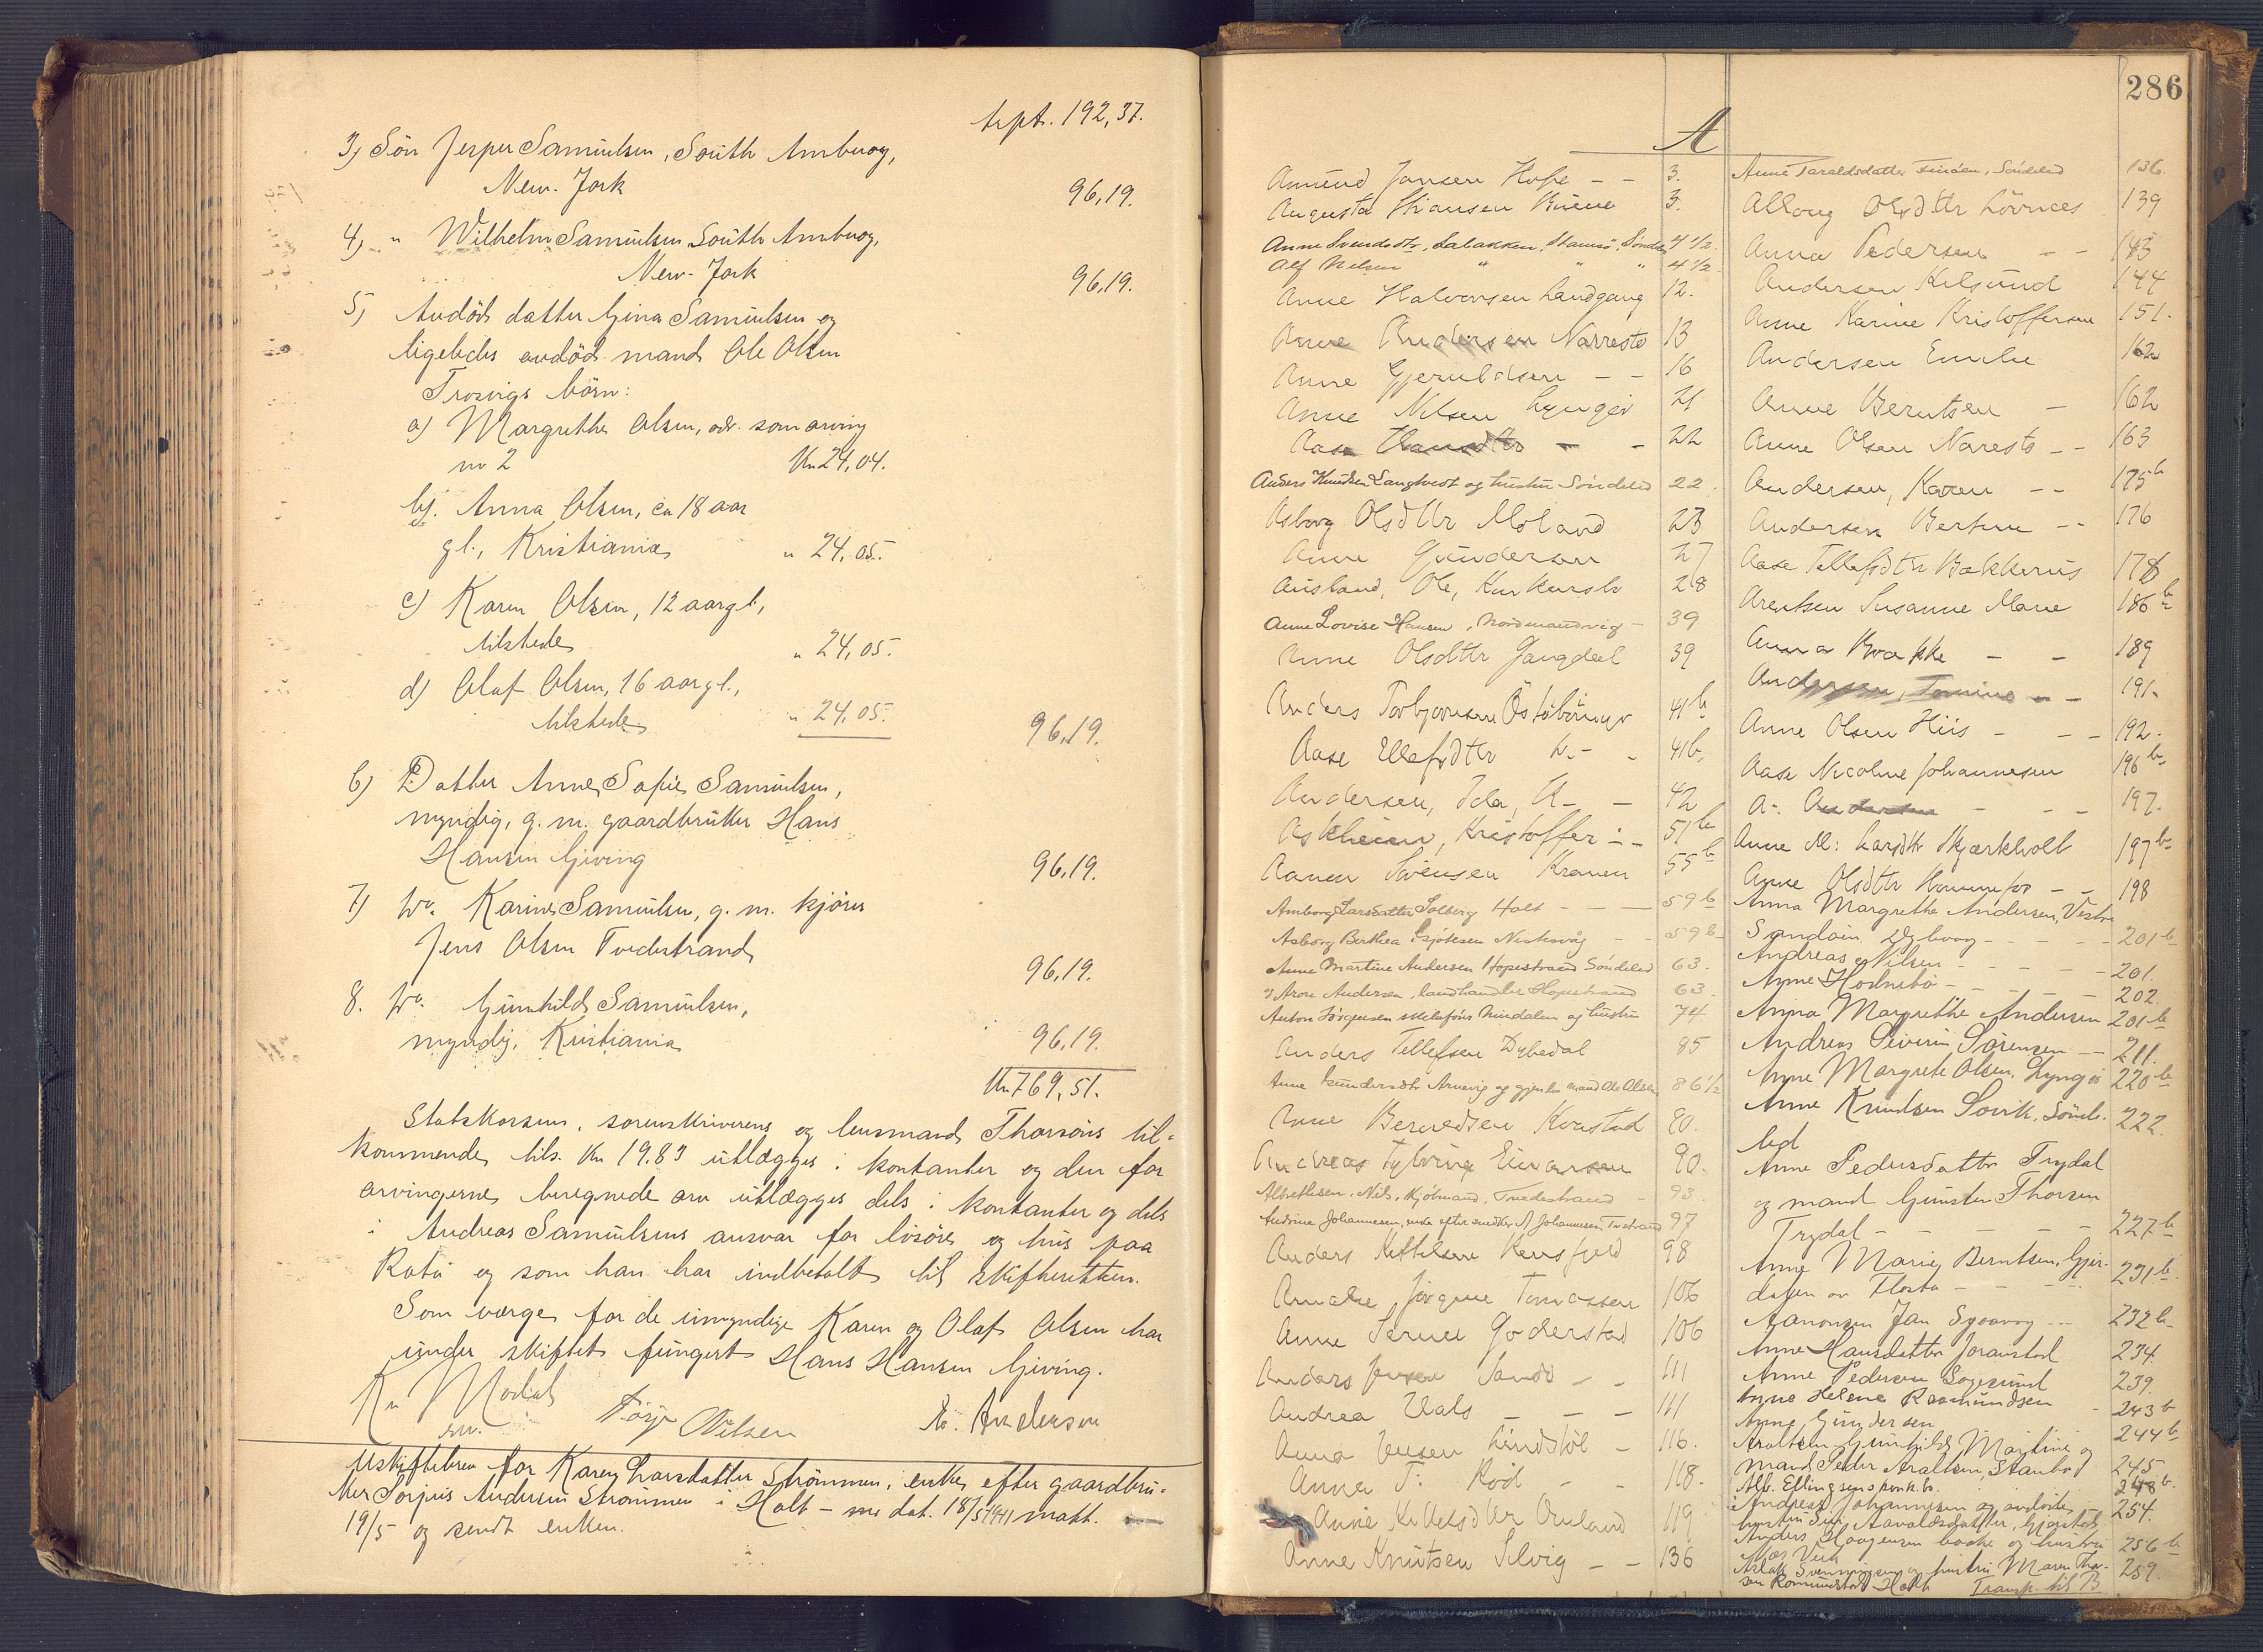 trspt. 192,37.
3) Sön Jesper Samuelsen, South Amburg,
New-York 96,19.
4) " Wilhelm Samuelsen South Amburg,
New-York 96,19.
5) Avdöd datter Gina Samuelsen og
ligeledes avdöd mand Ole Olsen
Trosvigs börn:
a) Margrethe Olsen, som arving
nr 2 Kr 24,04.
b). Anna Olsen, ca 18 aar
gl., Kristiania " 24,05.
c) Karen Olsen, 12 aar gl.,
tilstede " 24,05.
d) Olaf Olsen, 16 aar gl.,
tilstede " 24,05. 96,19.
6) Datter Anne Sofie Samuelsen,
myndig, g. m. gaardbruker Hans
Hansen Giving 96,19.
7) Do. Karine Samuelsen, g. m. kjörer
Jens Olsen Tvedestrand 96,19.
8. Do. Gunhild Samuelsen,
myndig, Kristiania 96,19.
Kr 769,51.
Statskassens, sorenskriverens og lensmand Thorsöns til-
kommende tils. Kr 19.83 utlægges i kontanter og den for
arvingerne beregnede arv utlægges dels i kontanter og dels
i Andreas Samuelsens ansvar for lösöre og hus paa
Rota og som han har indbetalt til skifteretten.
Som værge for de umyndige Karen og Olaf Olsen har
under skiftet fungert Hans Hansen Giving.
Terje Nilsen A. Andersen
Uskiftebrev for Karen Larsdatter Strömmen, enke efter gaardbru-
ker Andersen Strömmen i Holt - dat. 18/5 1911
19/5 og sendt enken.
286
A
Amund Jansen Hope - - 3.
Augusta Hansen 3.
Anne Svendsdtr, Sabakken, Söndeled 4 1/2
Alf Nilsen " " " 4 1/2
Anne Halvorsen Landgang 12.
Anne Andersen Narresto 13
Anne Gjeruldsen - - 16
Anne Nilsen Lyngör 21
Aase - - 22
Anders Knudsen Langkvest og hustru Söndeled 22.
Asborg Olsdtr Moland 23
Anne Gundersen 27
Ausland, Ole, 28
Anne Lovise Hansen, Nordmandvig - 39
Anne Olsdtr Gangdal 39
Anders Torbjörnsen 41 b
Aase Ellefsdtr - 41b.
Andersen, Ida, A - - 42
Askheim, Kristoffer - - 51 b
Aanen Svensen Kranen 55 b
Amborg Larsdatter Solberg Holt - - - 59 b
Asborg Berthea Gjötesen - - 59 b
Anne Martine Andersen Hopestrand Söndeled 63.
Aron Andersen, landhandler Hopestrand 63.
Anton Jörgensen og hustru 74
Anders Tellefsen Dybedal 85
Anne Gundersdtr Arnevig og gjenlev. mand Ole Olsen 86 1/2
Anne Berntsen 80.
Andreas 90.
Albethsen, Nils, kjöbmand, Tvedestrand - 93.
Andrine Johannesen, enke efter smedker A Johannesen Tvestrand 97
Anders Kittilsen 98
Amalie Jörgine Tomassen 106
Anne Serine Goderstad 106
Anders Jensen Sands - - 111
Andrea Vals - - - 111
Anna Jensen Lindstöl - 116.
Anna T. Röd - - 118.
Anne Kittelsdtr Auland 119
Anne Knutsen Silvig - - 136
Anne Taraldsdatter Söndeled 136.
Allaug Olsdtr Lövnæs 139
Anna Pedersen - - 143
Andersen Kilsund 144
Anne Karine Kristoffersen 151.
Andersen Emilie 162
Anne Berntsen - 162
Anne Olsen Naresto - - 163
Andersen, Karen - - 175 b
Andersen Bertine - - 176
Aase Tellefsdtr Bakkerus 178
Arentsen Susanne Marie 186 b
Anna Brække - - 189
Andersen, Tomine - - 191.
Anne Olsen Hiis - - - 192.
Aase Nicoline Johannesen 196 b
A. Andersen - - - 197.
Anne M: Larsdtr Skjærkholt 197 b
Anne Olsdtr - - 198
Anna Margrethe Andersen, Vestre
Sandöen Dybvaag - - - - - 201 b
Andreas Nilsen - - - - - 201.
Anne Holmbo - - - - 202.
Anna Margrethe Andersen 201 b
Andreas Severin Sörensen - - 211.
Anne Margrete Olsen, Lyngör 220 b
Anne Knudsen Sovik, Sönde- 222.
led
Anne Pedersdatter Trydal
og mand Gunster Thorsen
Trydal - - - - - 227 b
Anne Marie Berntsen, Gjer-
dalen av Flosta - 231 b
Aanonsen Jan - - 232 b
Anne Hansdatter Joranstad 234.
Anne Pedersen Sagesund 239.
Anne Helene Rasmundsen - 243 b
Anne Gundersen 244 b
Aralsen Gunhild Martine og
mand Peder Aralsen, Staubö 245
Alb. Ellingsens 248 b.
Andreas Johannesen og avdöde 254.
hustru Siri Aavaldsdatter, Gjerstad
Anders Haagensen og hustru 256 b
Aslak Svenningsen og hustru Maren Thor- 259.
sen Romundstad Holt Transp. til B